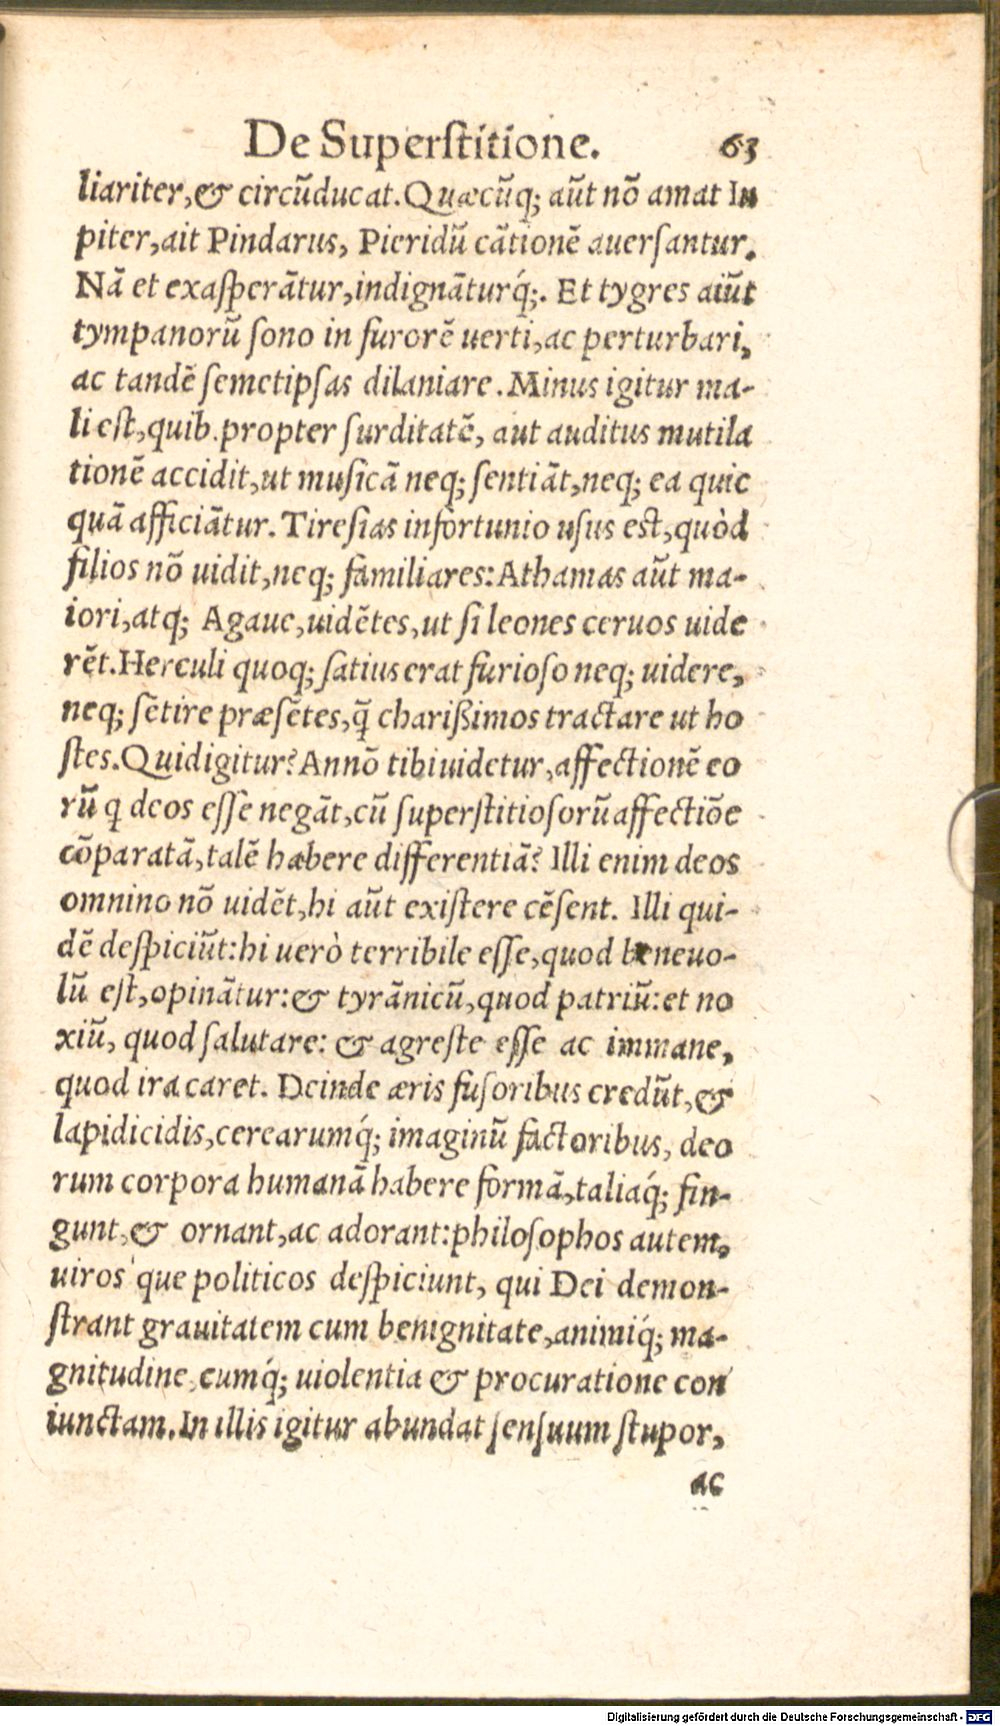 De Superstitione. 63
liariter,& circũducat. Quæcũq; aũt nõ amat Iu
piter,ait Pindarus, Pieridũ cãtionẽ auersantur.
Nã et exasperãtur,indignãturq́;. Et tygres aiũt
tympanorũ sono in furorẽ uerti,ac perturbari,
ac tandẽ semetipsas dilaniare. Minus igitur ma-
li est,quib. propter surditatẽ, aut auditus mutila
tionẽ accidit,ut musicã neq; sentiãt,neq; ea quic
quã afficiãtur. Tiresias infortunio usus est,quòd
filios nõ uidit,neq; familiares: Athamas aũt ma-
iori,atq; Agaue,uidẽtes,ut si leones ceruos uide
rẽt. Herculi quoq; satius erat furioso neq; uidere,
neq; sẽtire præsẽtes,q̃ charißimos tractare ut ho
stes. Quid igitur? Annõ tibi uidetur,affectionẽ eo
rũ q deos esse negãt,cũ superstitiosorũ affectiõe
cõparatã,talẽ habere differentiã? Illi enim deos
omnino nõ uidẽt,hi aũt existere cẽsent. Illi qui-
dẽ despiciũt:hi uerò terribile esse,quod beneuo-
lũ est,opinãtur:& tyrãnicũ,quod patriũ:et no
xiũ, quod salutare: & agreste esse ac immane,
quod ira caret. Deinde æris fusoribus credũt,&
lapidicidis,cerearumq́; imaginũ factoribus, deo
rum corpora humanã habere formã,taliaq́; fin-
gunt,& ornant,ac adorant:philosophos autem,
uiros que politicos despiciunt, qui Dei demon-
strant grauitatem cum benignitate,animiq́; ma-
gnitudine,cumq́; uiolentia & procuratione con
iunctam. In illis igitur abundat sensuum stupor,
ac
Digitalisierung gefördert durch die Deutsche Forschungsgemeinschaft - DFG